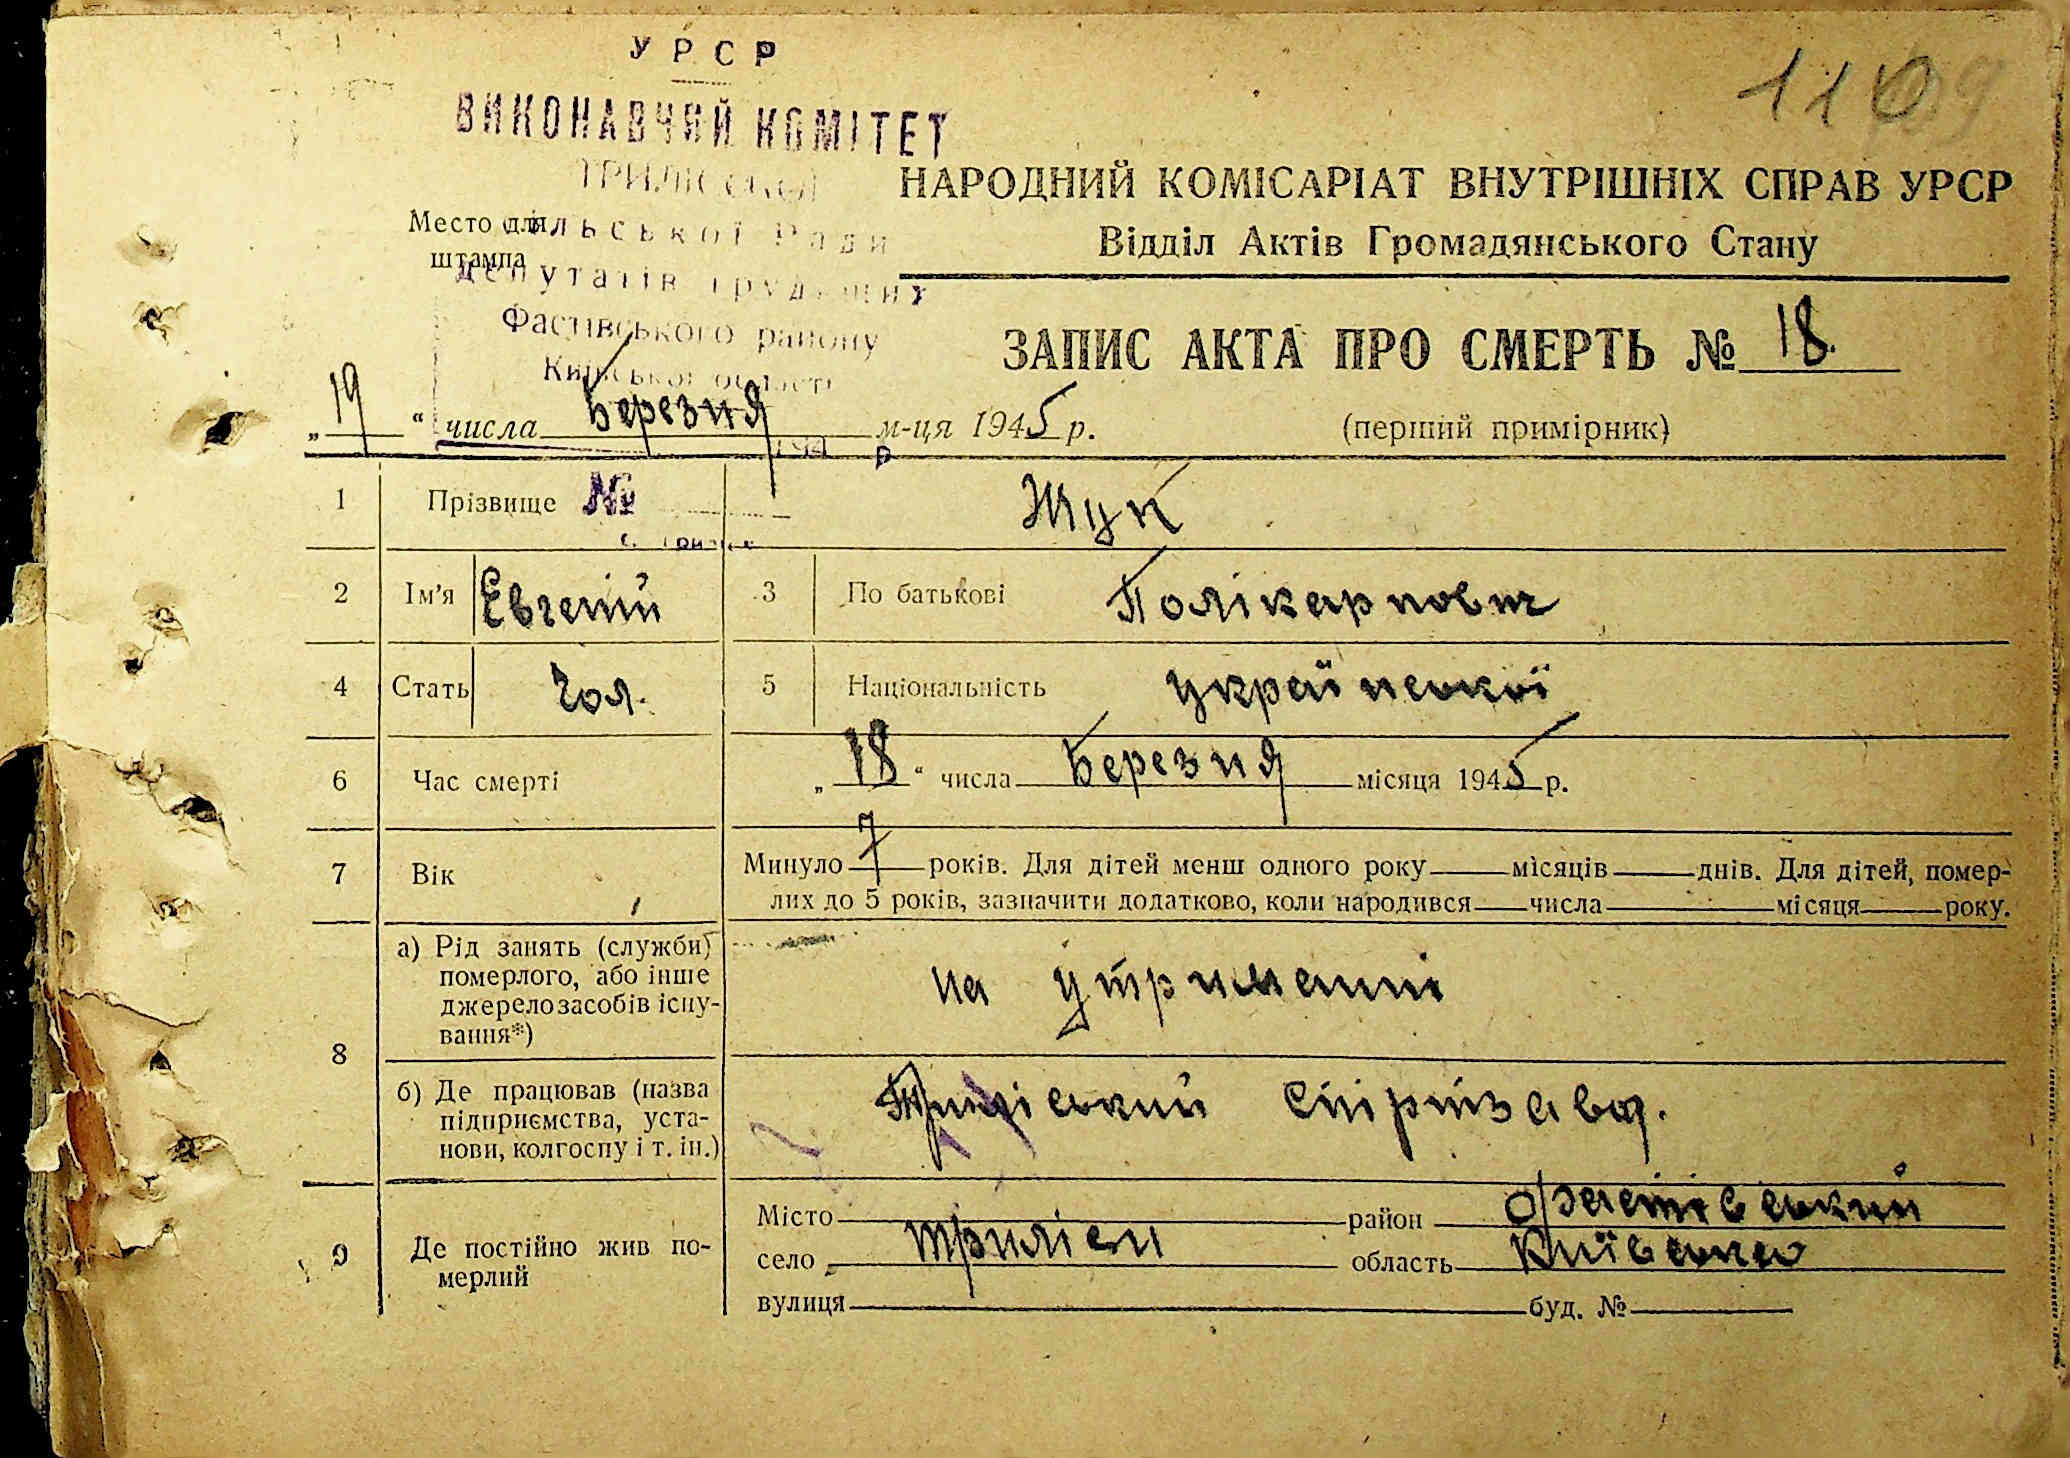 УРСР
ВИКОНАВЧИЙ КОМІТЕТ
ТРИЛІСЬКОЇ
сільської Ради
депутатів трудящих
Фастівського району
Київської області
Место для
штампа
110
НАРОДНИЙ КОМІСАРІАТ ВНУТРІШНІХ СПРАВ УРСР
Відділ Актів Громадянського Стану
ЗАПИС АКТА ПРО СМЕРТЬ № 18.
„19“ числа Березня м-ця 1945 р.
(перший примірник)
194 р
1 Прізвище № Жук
2 Ім'я Євгеній 3 По батькові Полікарпович
4 Стать Чол. 5 Національність української
6 Час смерті „18“ числа Березня місяця 1945 р.
7 Вік Минуло 7 років. Для дітей менш одного року місяців днів. Для дітей, помер-
лих до 5 років, зазначити додатково, коли народився числа місяця року.
8 а) Рід занять (служби)
померлого, або інше
джерело засобів існу-
вання*)
на утриманні
б) Де працював (назва
підприємства, уста-
нови, колгоспу і т. ін.)
Триліський Спіртзавод.
9 Де постійно жив по-
мерлий
Місто район Фастівський
село Триліси область Київська
вулиця буд. №